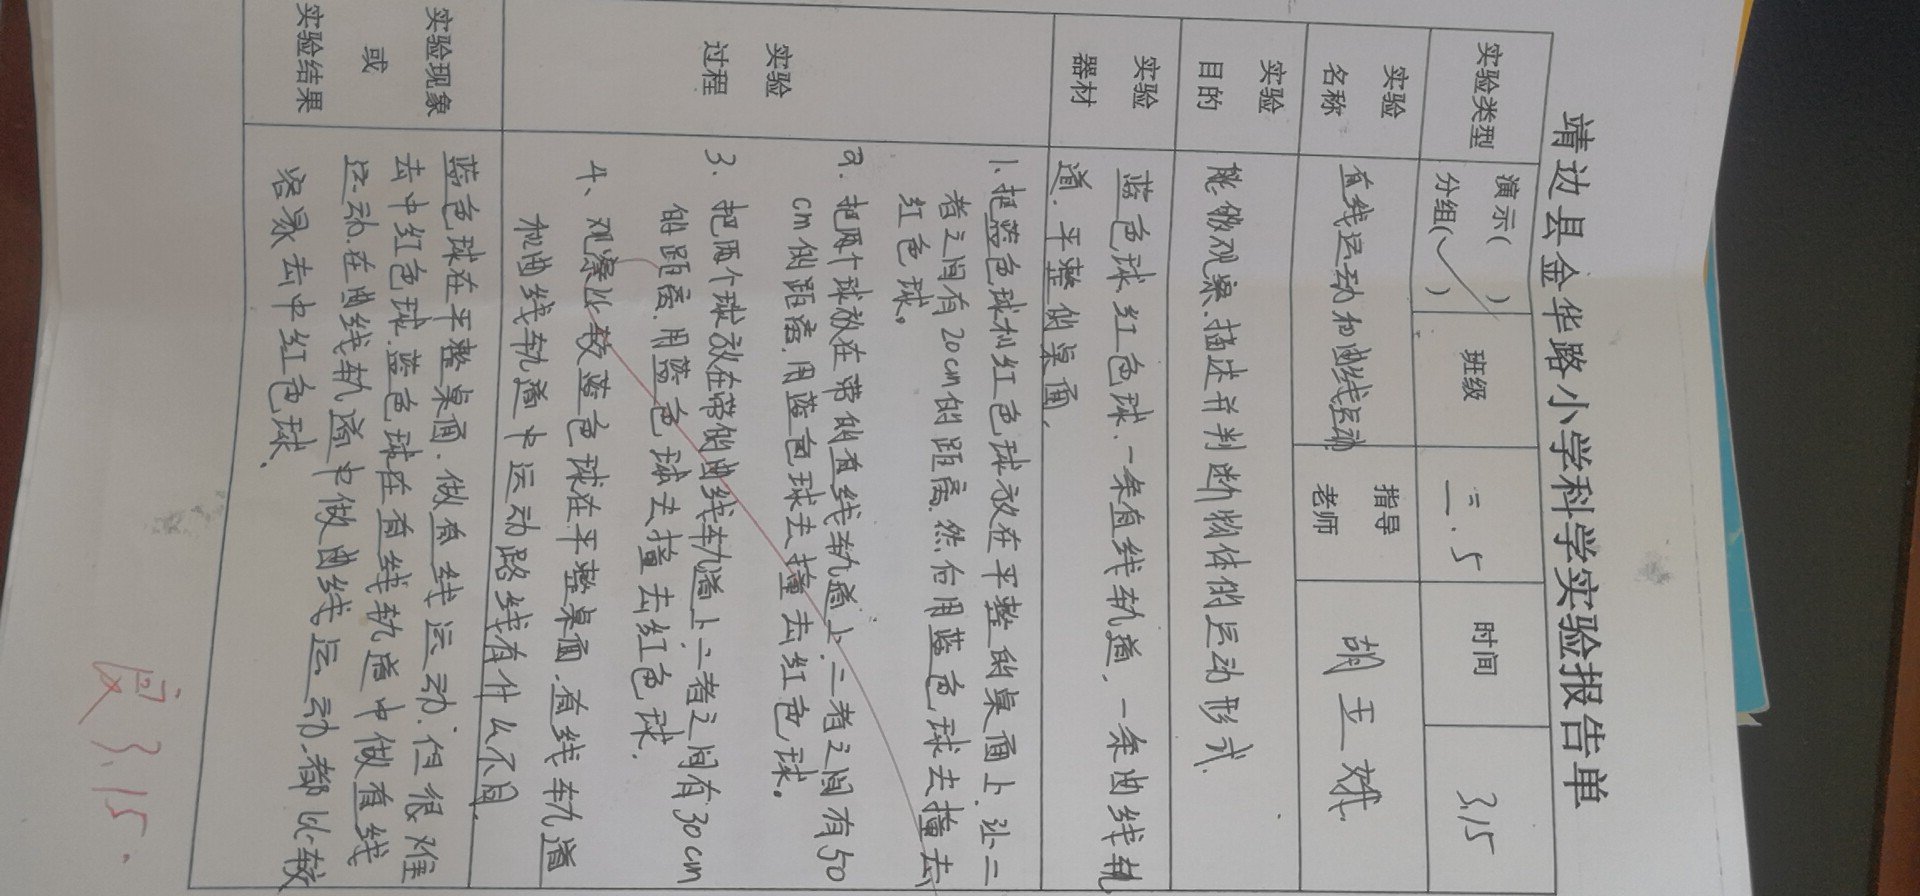 靖边县金华路小学科学实验报告单
实验类型 演示( ) 分组(✓) 班级 二.5 时间 3.15
实验名称 直线运动和曲线运动 指导老师 胡王娥
实验目的 能够观察、描述并判断物体的运动形式.
实验器材 蓝色球.红色球.一条直线轨道.一条曲线轨
道.平整的桌面.
实验过程
1.把蓝色球和红色球放在平整的桌面上.让二
者之间有20cm的距离.然后用蓝色球去撞去
红色球。
2.把两个球放在带的直线轨道上.二者之间有50
cm的距离.用蓝色球去撞去红色球。
3.把两个球放在带的曲线轨道上二者之间有30cm
的距离.用蓝色球去撞去红色球.
4、观察比较蓝色球在平整桌面.直线轨道
和曲线轨道中运动路线有什么不同.
实验现象或实验结果
蓝色球在平整桌面.做直线运动.但很难
去中红色球.蓝色球在直线轨道中做直线
运动.在曲线轨道中做曲线运动.都比较
容易去中红色球.
3.15.